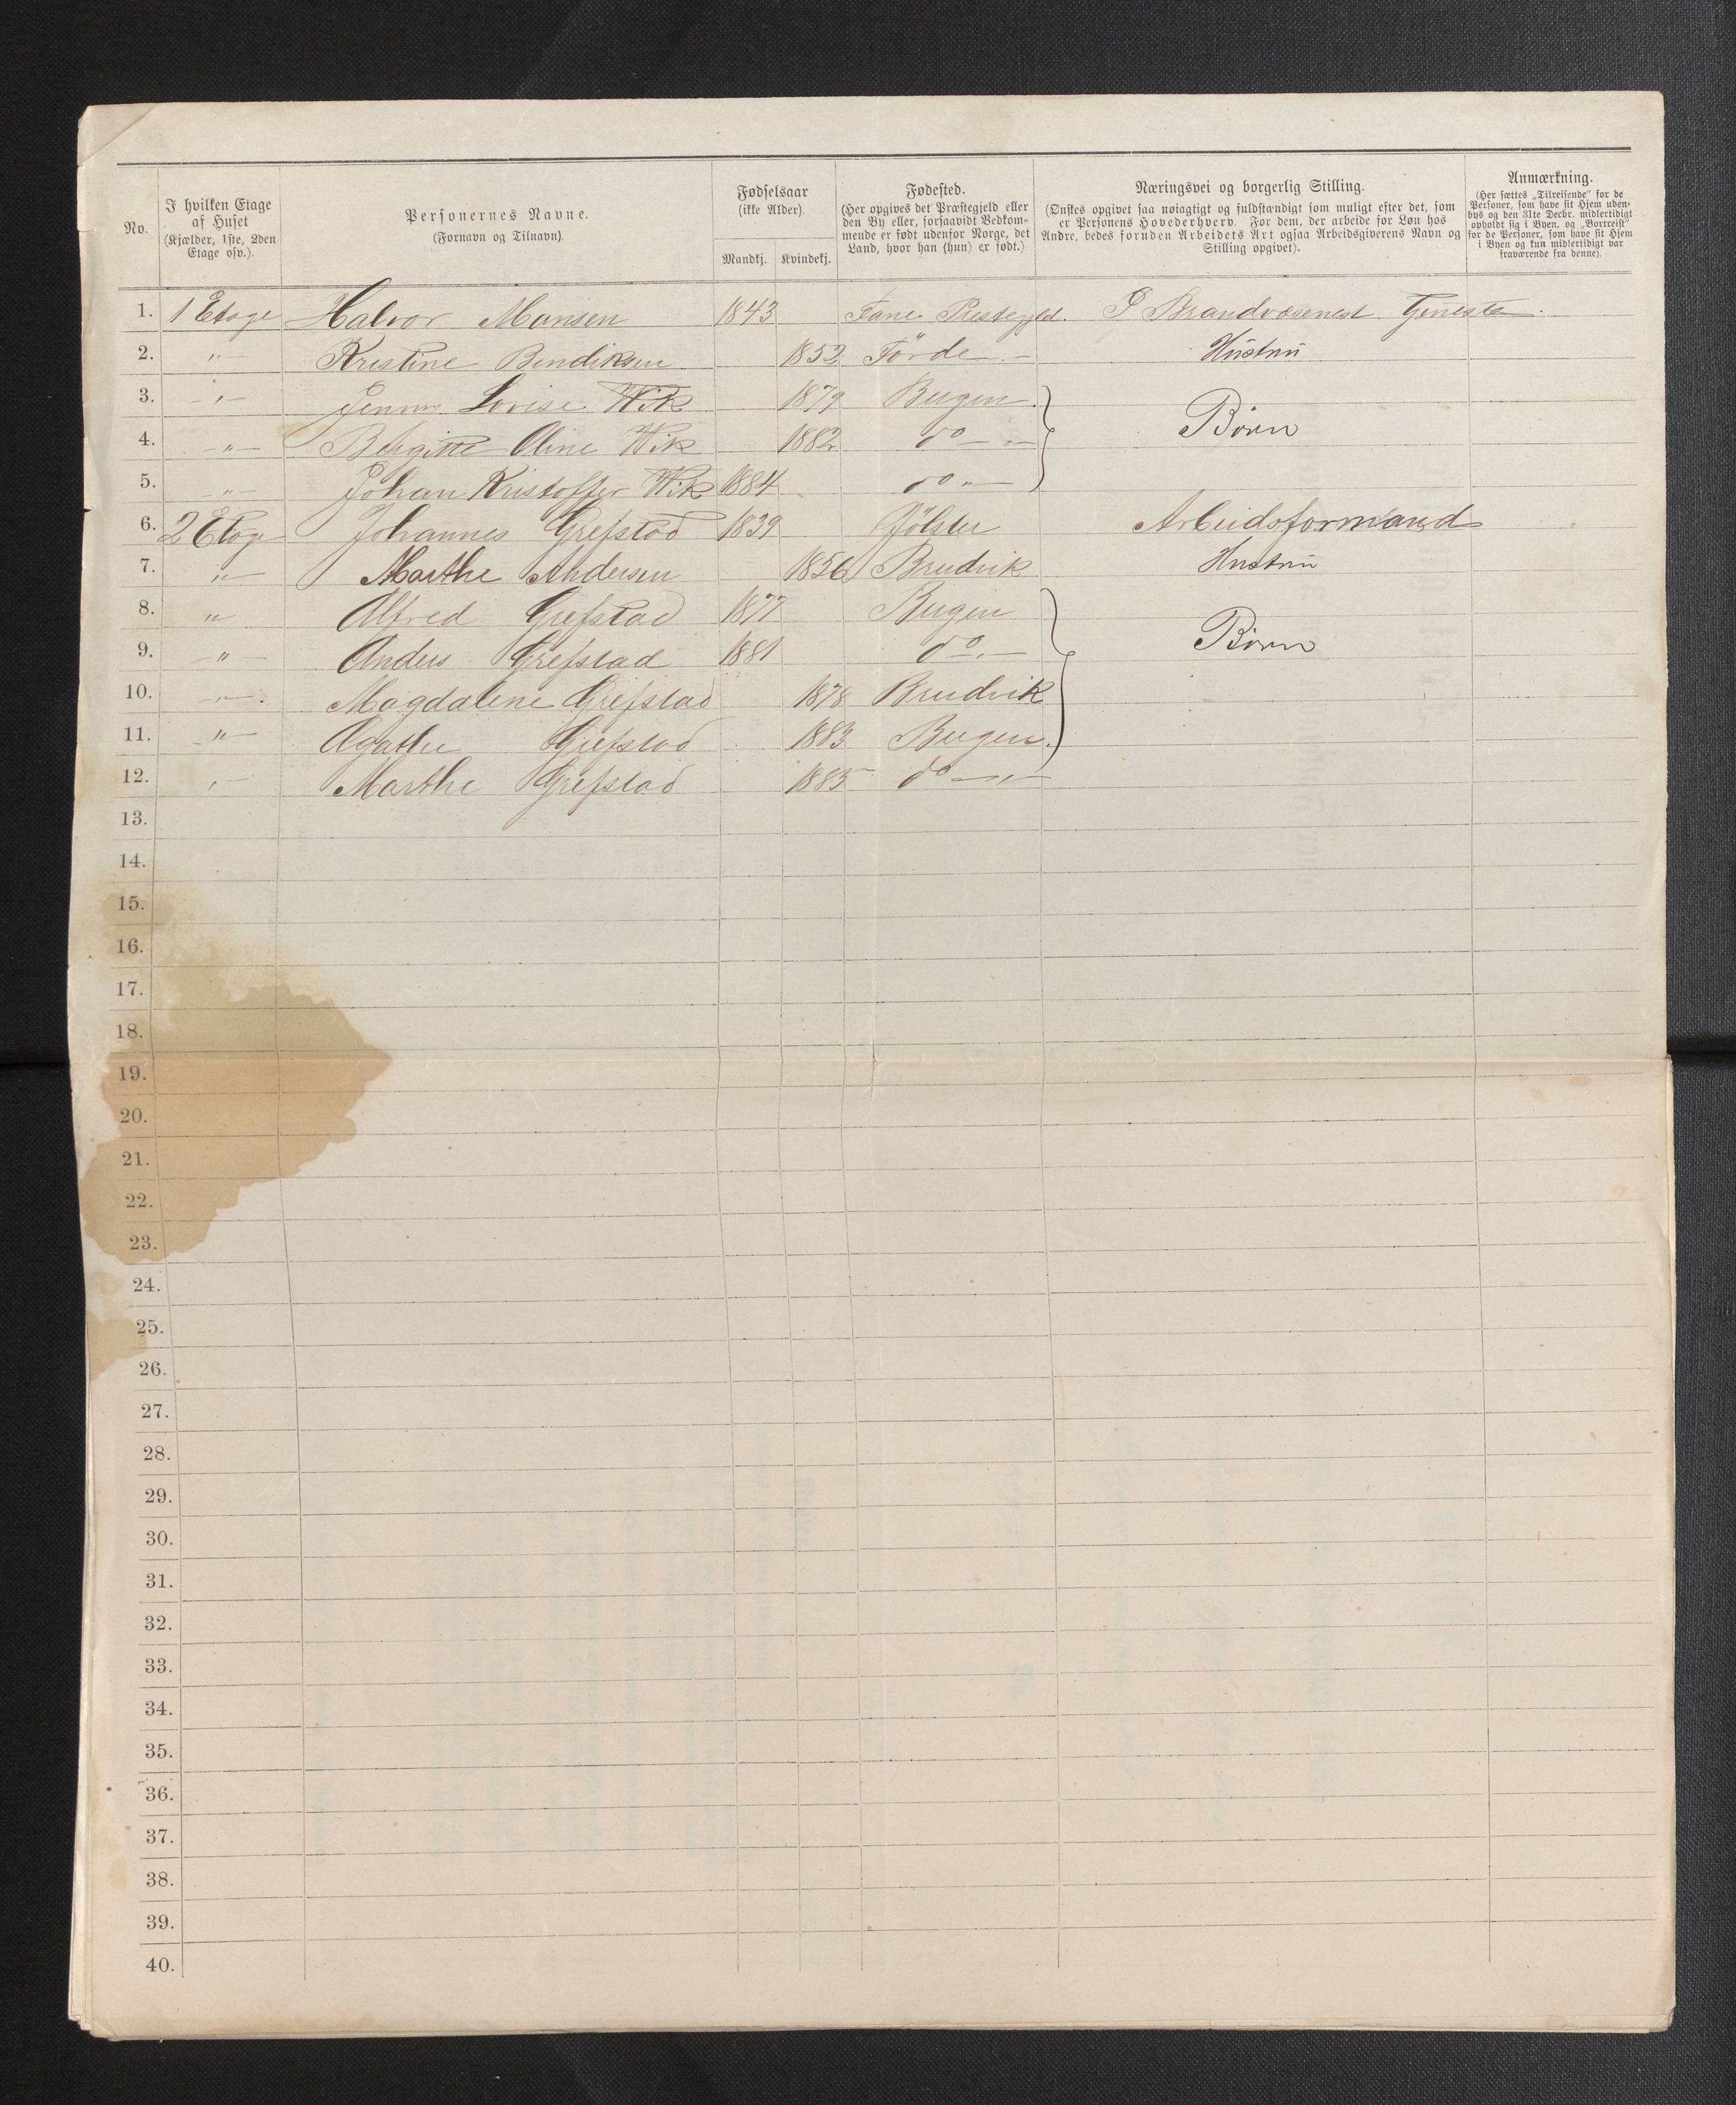 No.
I hvilken Etage
af Huset
(Kjælder, 1ste, 2den
Etage osv.).
Personernes Navne.
(Fornavn og Tilnavn).
Fødselsaar
(ikke Alder).
Mandkj. Kvindekj.
Fødested.
(Her opgives det Præstegjeld eller
den By eller, forsaavidt Vedkom-
mende er født udenfor Norge, det
Land, hvor han (hun) er født.)
Næringsvei og borgerlig Stilling.
(Ønskes opgivet saa nøiagtigt og fuldstændigt som muligt efter det, som
er Personens Hovederhverv. For dem, der arbeide for Løn hos
Andre, bedes foruden Arbeidets Art ogsaa Arbeidsgiverens Navn og
Stilling opgivet).
Anmærkning.
(Her sættes „Tilreisende" for de
Personer, som have sit Hjem uden-
bys og den 31te Decbr. midlertidigt
opholdt sig i Byen, og „Bortreist"
for de Personer, som have sit Hjem
i Byen og kun midlertidigt var
fraværende fra denne).
1. 1 Etage Halvor Monsen 1843 Fane Prestegjeld. I Brandvæsenest Tjeneste.
2. " Kristine Bendiksen 1852 Förde Hustru
3. " Jenny Lovise Wik 1879 Bergen
4. " Bergitte Oline Wik 1882 do " Børn
5. " Johan Kristoffer Wik 1884 do "
6. 2 Etage Johannes Grefstad 1839 Jölster Arbeidsformand
7. " Marthe Andersen 1856 Brudvik Hustru
8. " Alfred Grefstad 1877 Bergen
9. " Anders Grefstad 1881 do " Börn
10. " Magdalene Grefstad 1878 Brudvik
11. " Agathe Grefstad 1883 Bergen
12. " Marthe Grefstad 1885 do "
13.
14.
15.
16.
17.
18.
19.
20.
21.
22.
23.
24.
25.
26.
27.
28.
29.
30.
31.
32.
33.
34.
35.
36.
37.
38.
39.
40.